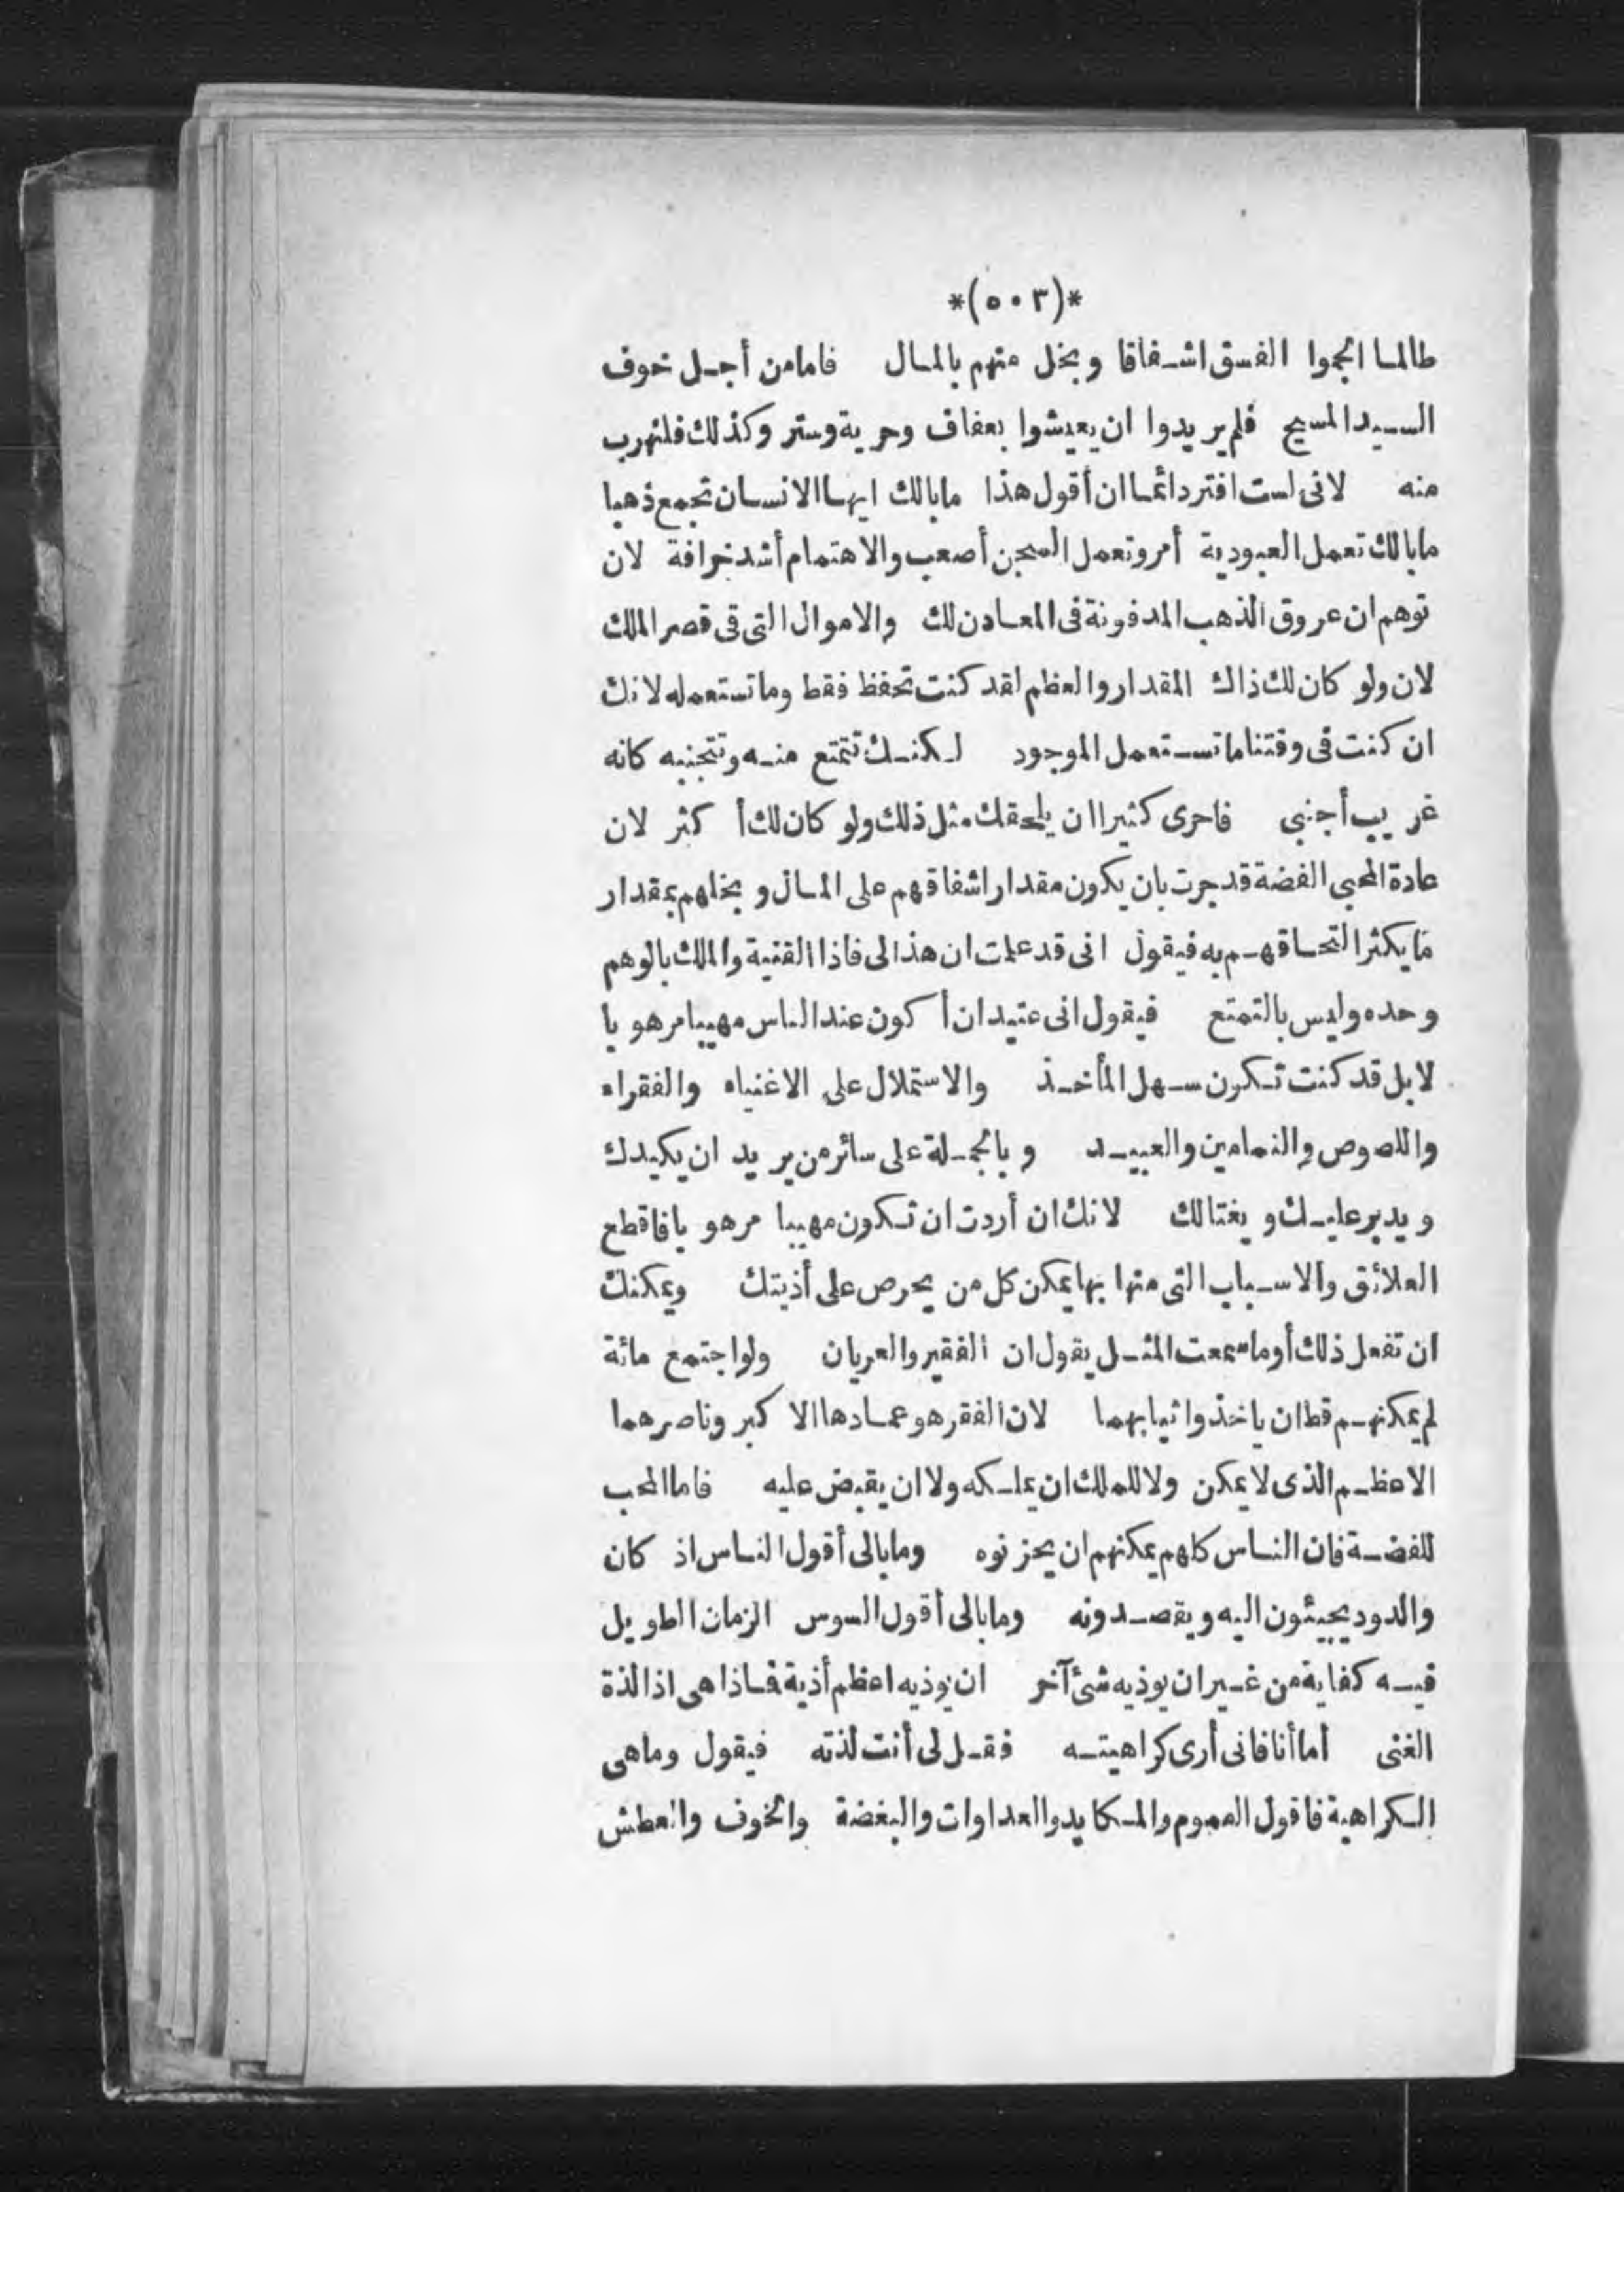 *(٥٠٣)*
طالما الجموا الفسق اشفاقا وبخل منهم بالمال فامامن أجل خوف
السيد المسيح فلم يريدوا ان يعيشوا بعفاف وحرية وستر وكذلك فلنهرب
منه لانى لست افتر دائما ان أقول هذا مابالك ايها الانسان تجمع ذهبا
مابالك تعمل العبودية أمر وتعمل السجن أصعب والاهتمام أشد خرافة لان
توهم ان عروق الذهب المدفونة فى المعادن لك والاموال التى فى قصر الملك
لان ولو كان لك ذاك المقدار والعظم لقد كنت تحفظ فقط وما تستعمله لانك
ان كنت فى وقتنا ما تستعمل الموجود لكنك تتمتع منه وتتجنبه كانه
غريب أجنبى فاحرى كثيرا ان يلحقك مثل ذلك ولو كان لك أكثر لان
عادة المحبى الفضة قد جرت بان يكون مقدار اشفاقهم على المال وبخلهم بمقدار
ما يكثر التحاقهم به فيقول انى قد علمت ان هذا لى فاذا القنية والملك بالوهم
وحده وليس بالتمتع فيقول انى عتيد ان أكون عند الناس مهيبا مرهوبا
لا بل قد كنت تكون سهل المأخذ والاستملال على الاغنياء والفقراء
واللصوص والنمامين والعبيد وبالجملة على سائر من يريد ان يكيدك
ويدبر عليك ويغتالك لانك ان أردت ان تكون مهيبا مرهوبا فاقطع
العلائق والاسباب التى منها بها يمكن كل من يحرص على أذيتك ويمكنك
ان تفعل ذلك أوما سمعت المثل يقول ان الفقير والعريان ولو اجتمع مائة
لم يمكنهم قط ان ياخذوا ثيابهما لان الفقر هو عمادها الاكبر وناصرهما
الاعظم الذى لا يمكن ولا للملك ان يملكه ولا ان يقبض عليه فاما المحب
للفضة فان الناس كلهم يمكنهم ان يحزنوه ومابالى أقول الناس اذ كان
والدود يجيئون اليه ويقصدونه ومابالى أقول السوس الزمان الطويل
فيه كفاية من غير ان يوذيه شئ آخر ان يوذيه اعظم أذية فاذا هى اذا لذة
الغنى أما أنا فانى أرى كراهيته فقل لى أنت لذته فيقول وماهى
الكراهية فاقول الهموم والمكايد والعداوات والبغضة والخوف والعطش